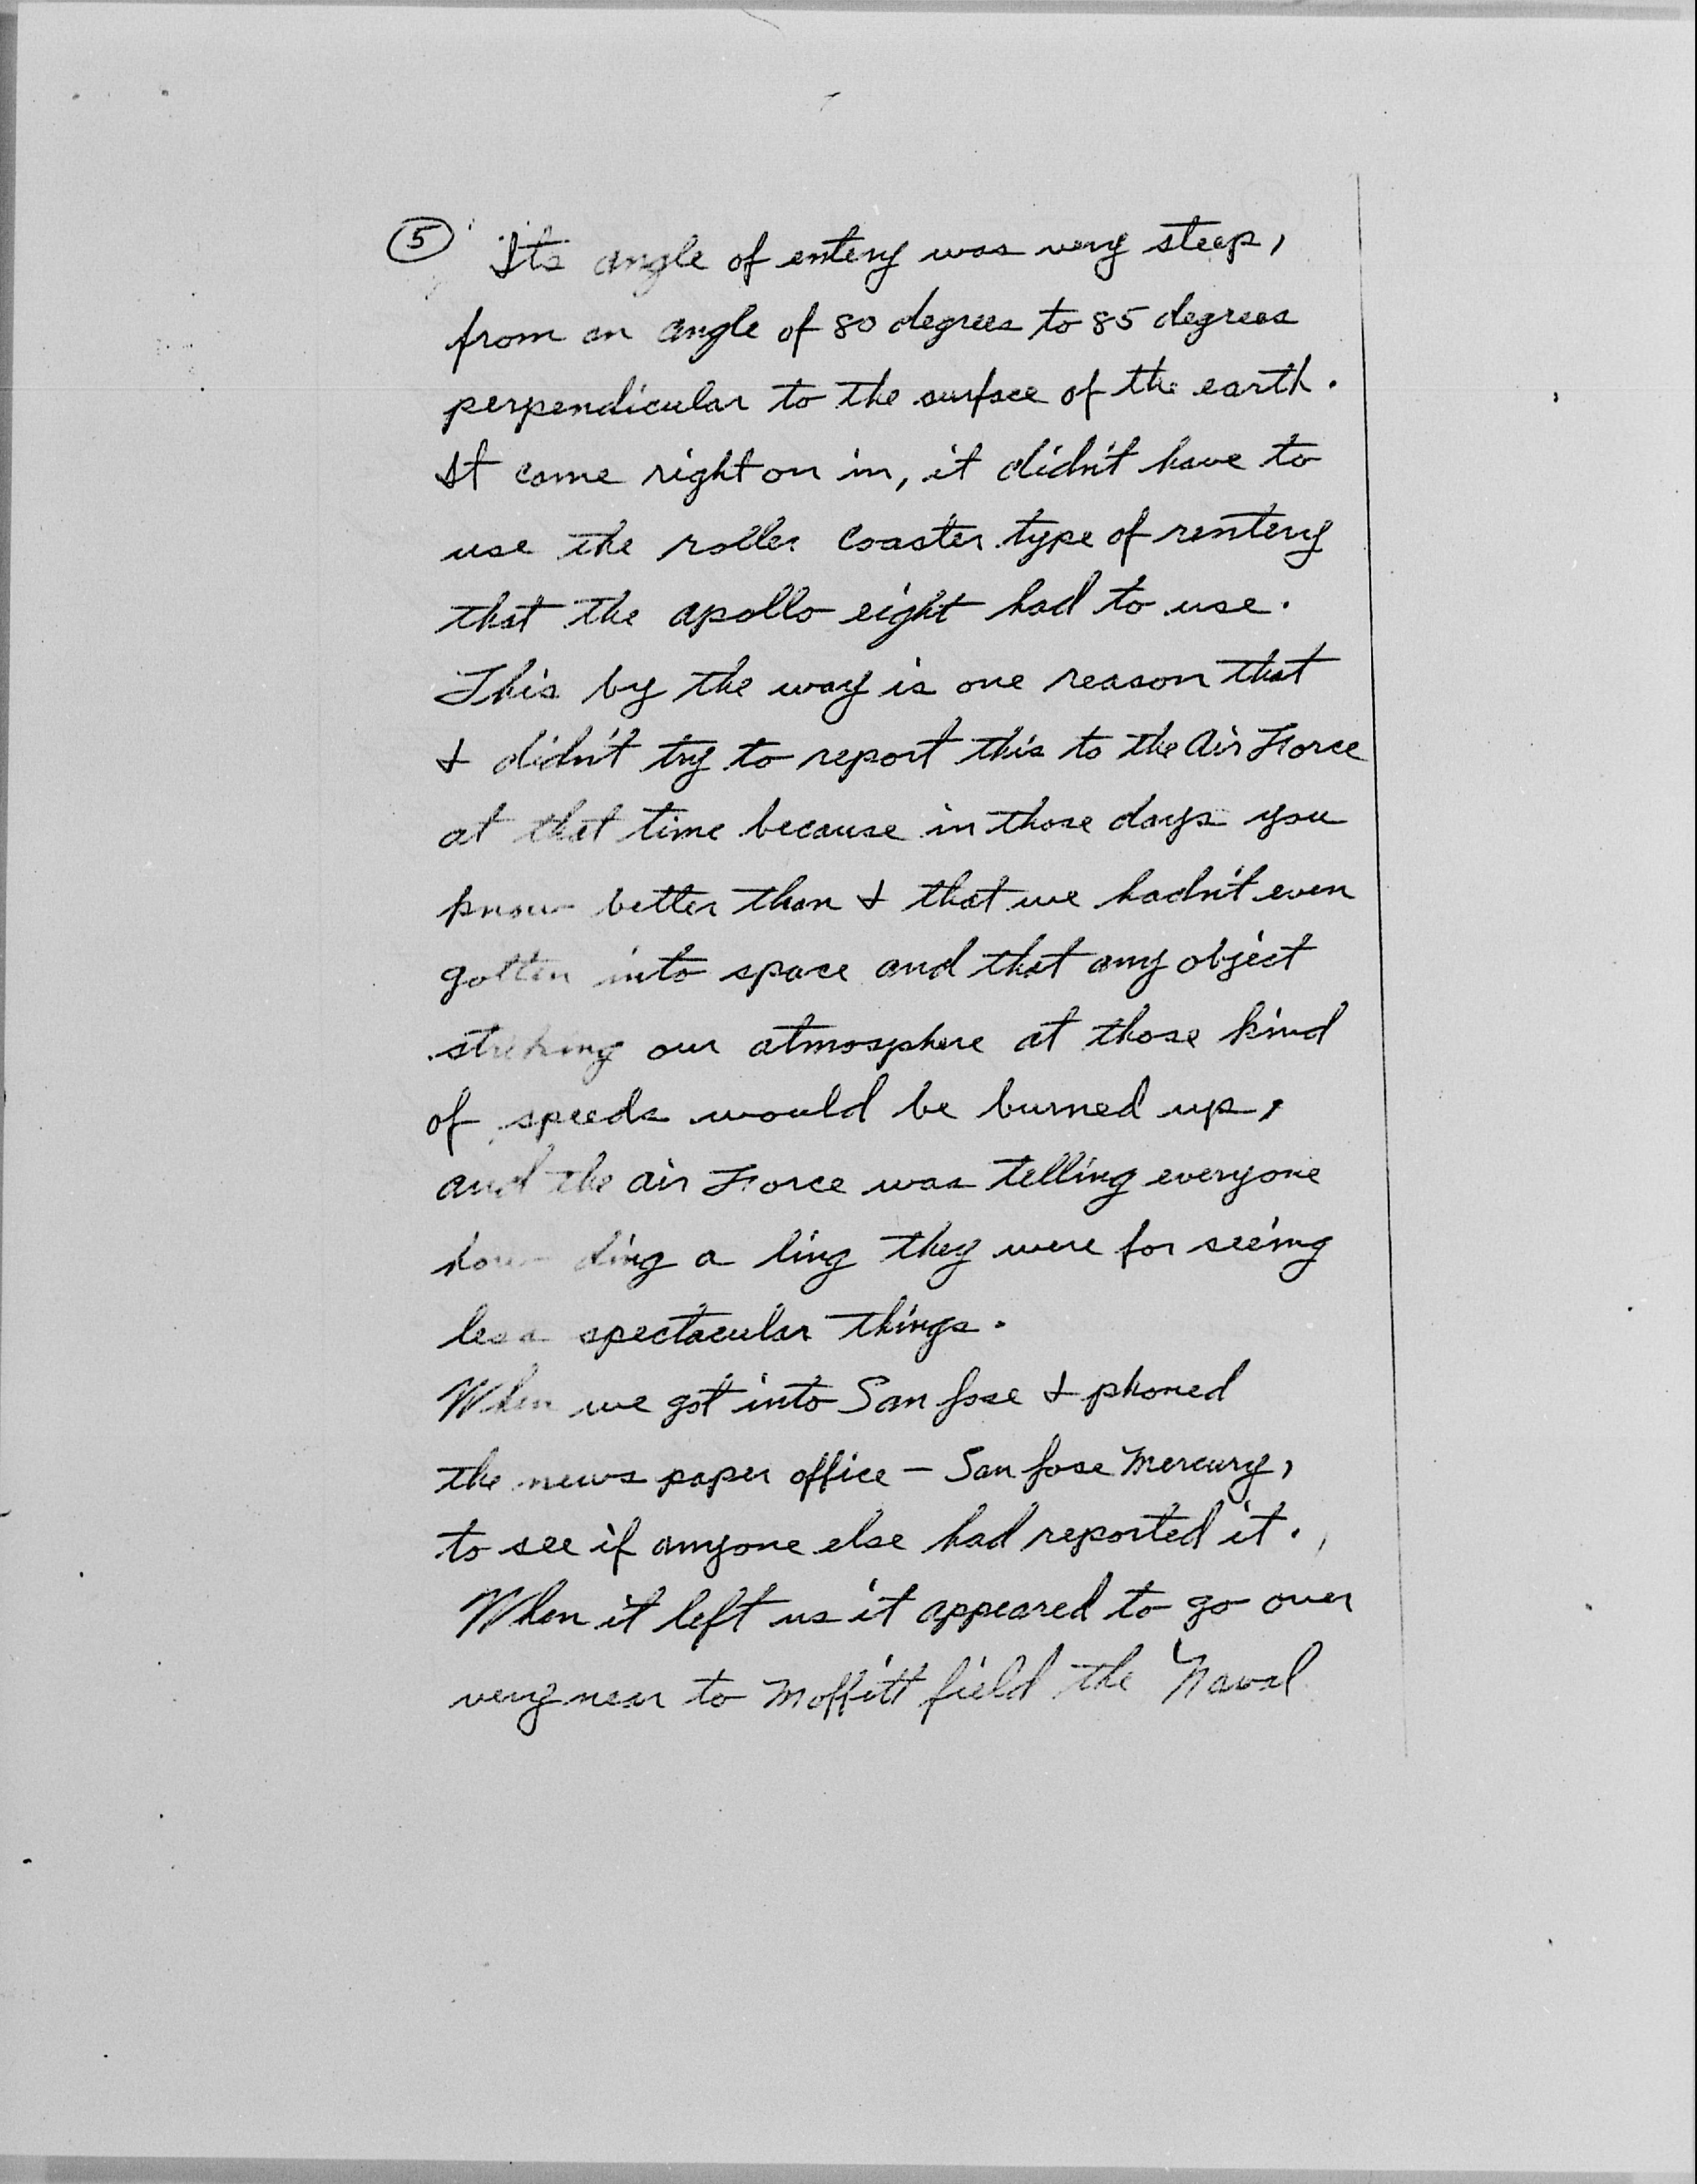 5 Its angle of entery was very steep,
from an angle of 80 degrees to 85 degrees
perpendicular to the surface of the earth.
It came right on in, it didn't have to
use the roller coaster type of rentery
that the apollo eight had to use.
This by the way is one reason that
I didn't try to report this to the Air Force
at that time because in those days you
know better than I that we hadn't even
gotten into space and that any object
striking our atmosphere at those kind
of speeds would be burned up,
and the air Force was telling everyone
how ding a ling they were for seeing
less spectacular things.
When we got into San Jose I phoned
the news paper office - San Jose Mercury,
to see if anyone else had reported it.
When it left us it appeared to go over
very near to Moffitt field the Naval